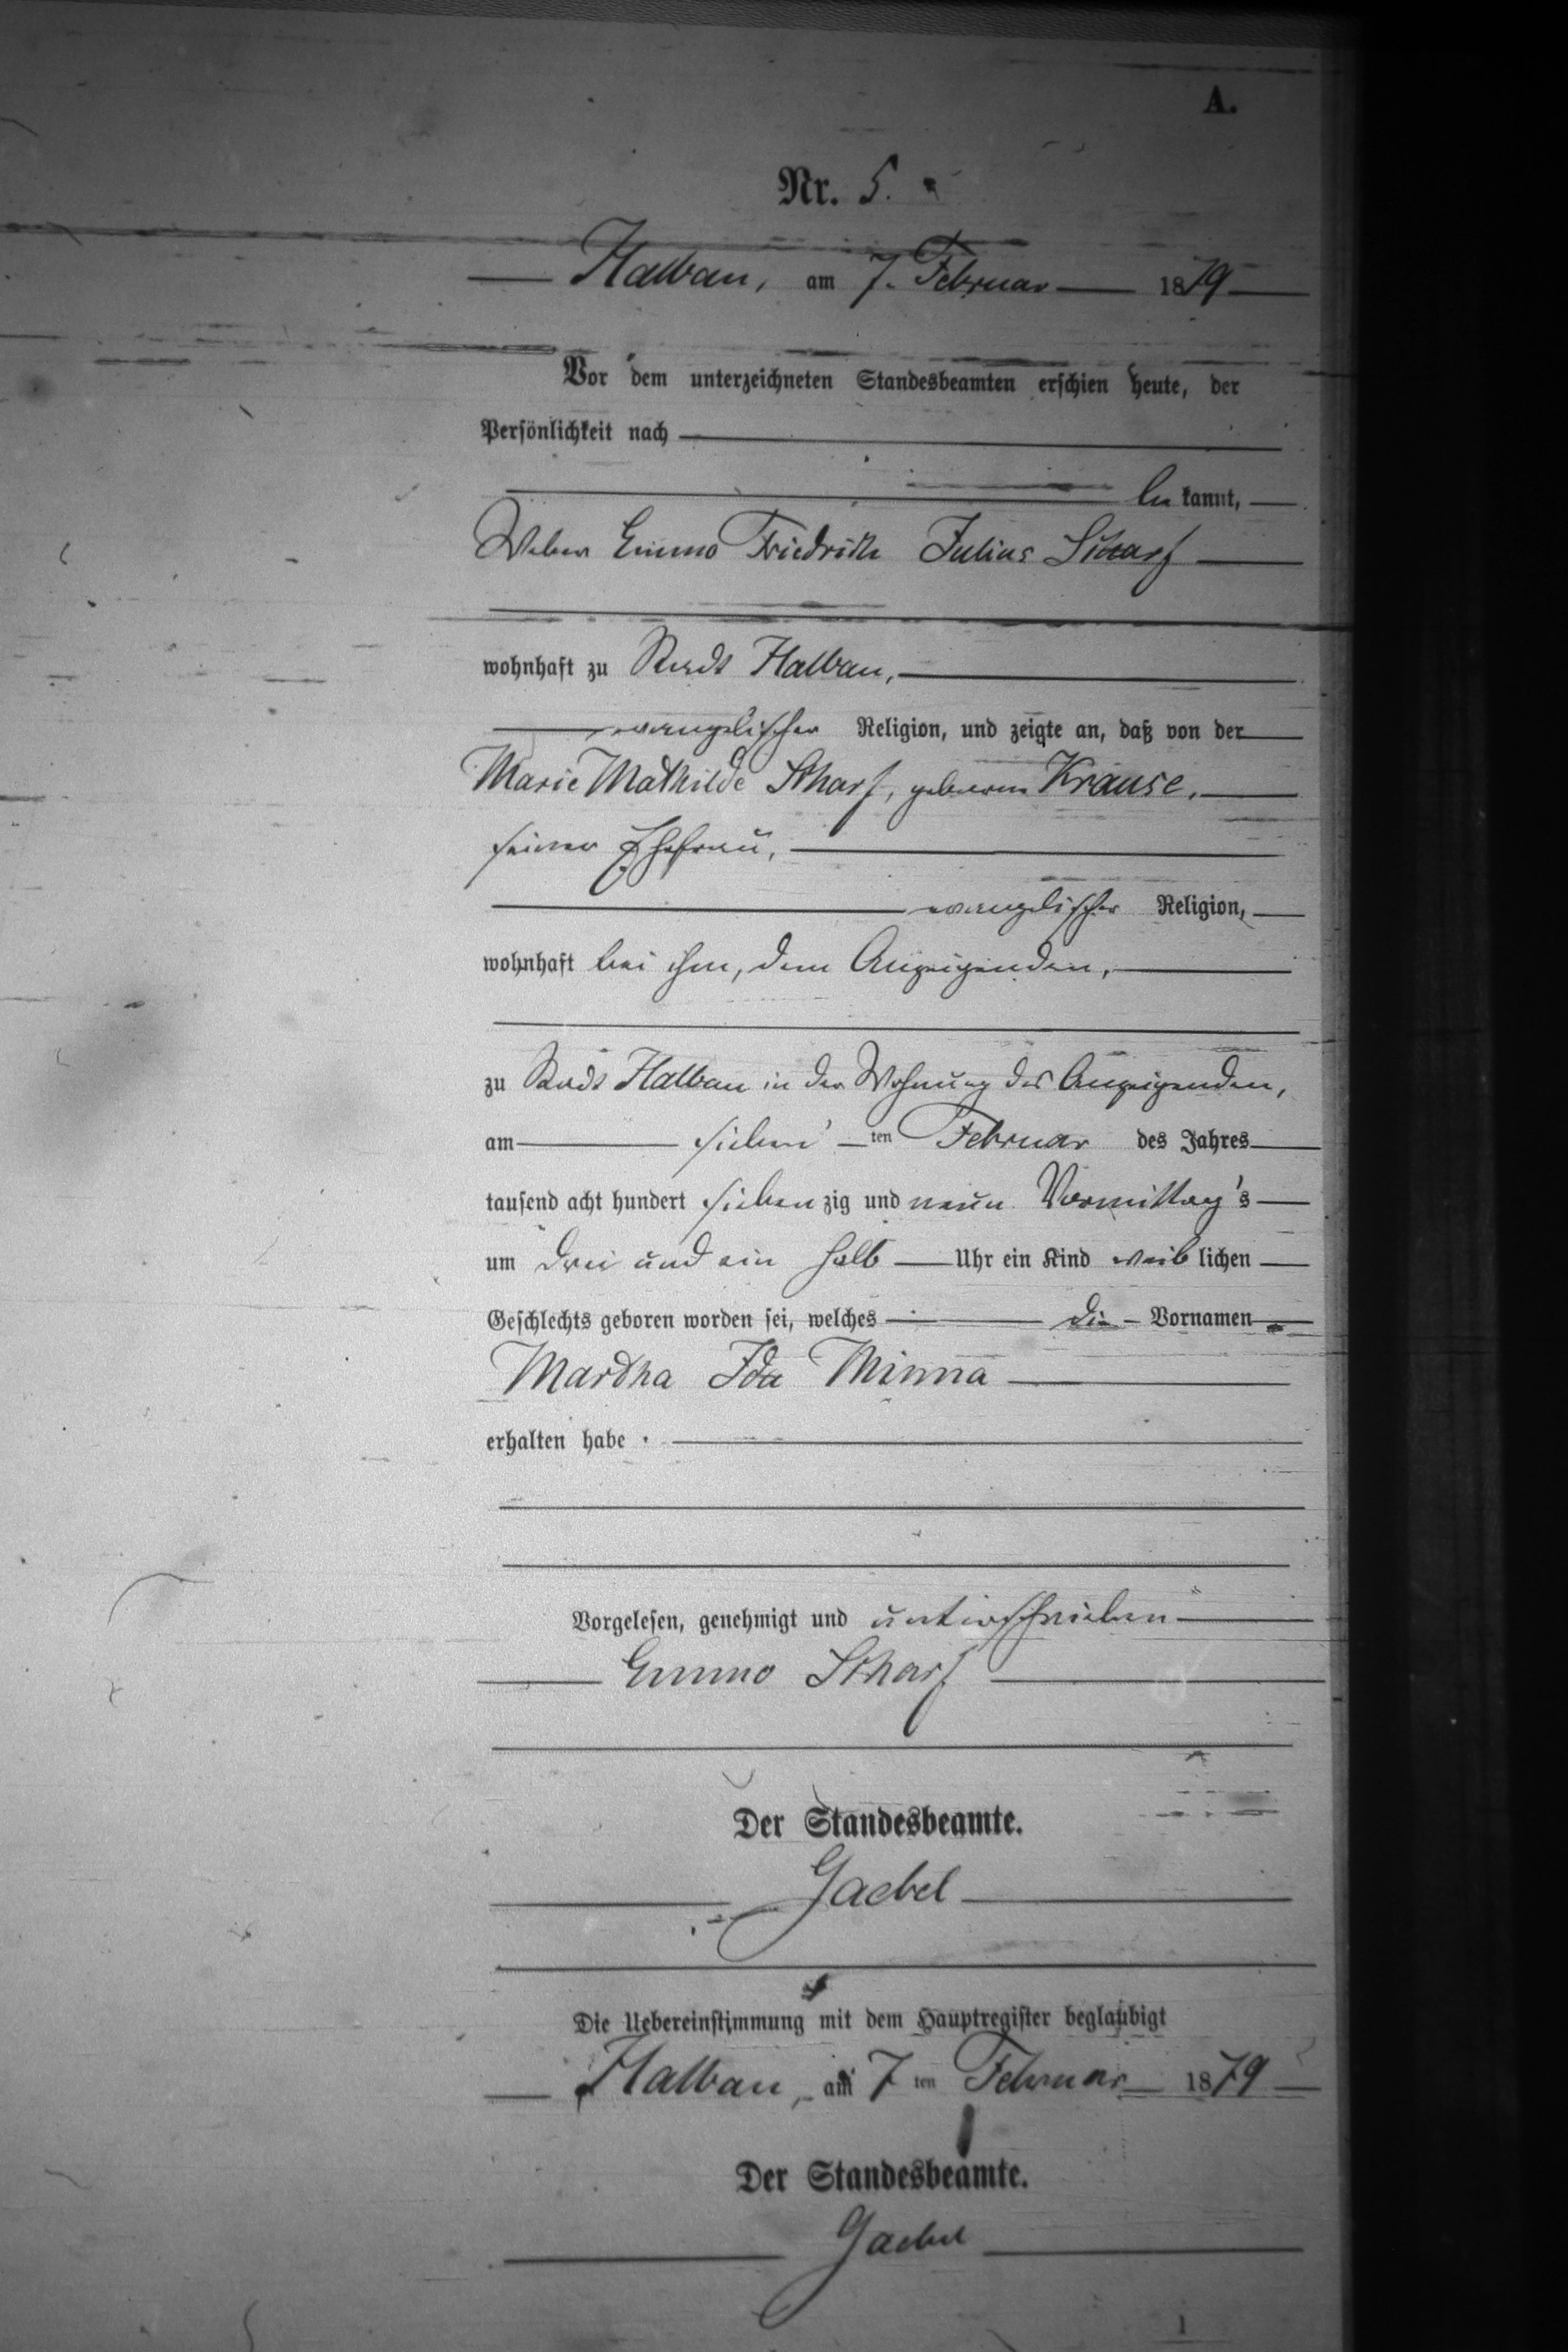 A.
Nr. 5.
Halbau, am 7. Februar 1879
Vor dem unterzeichneten Standesbeamten erschien heute, der
Persönlichkeit nach
be kannt,
Weber Emmo Friedrich Julius Scharf
wohnhaft zu Stadt Halbau,
evangelischer Religion, und zeigte an, daß von der
Marie Mathilde Scharf, geborene Krause,
seiner Ehefrau,
evangelischer Religion,
wohnhaft bei ihm, dem Anzeigenden,
zu Stadt Halbau in der Wohnung des Anzeigenden,
am sieben ten Februar des Jahres
tausend acht hundert sieben zig und neun Vormittag's
um drei und ein halb Uhr ein Kind weib lichen
Geschlechts geboren worden sei, welches die Vornamen
Martha Ida Minna
erhalten habe
Vorgelesen, genehmigt und unterschrieben
Emmo Scharf
Der Standesbeamte.
Gaebel
Die Uebereinstimmung mit dem Hauptregister beglaubigt
Halbau, am 7 ten Februar 1879
Der Standesbeamte.
Gaebel